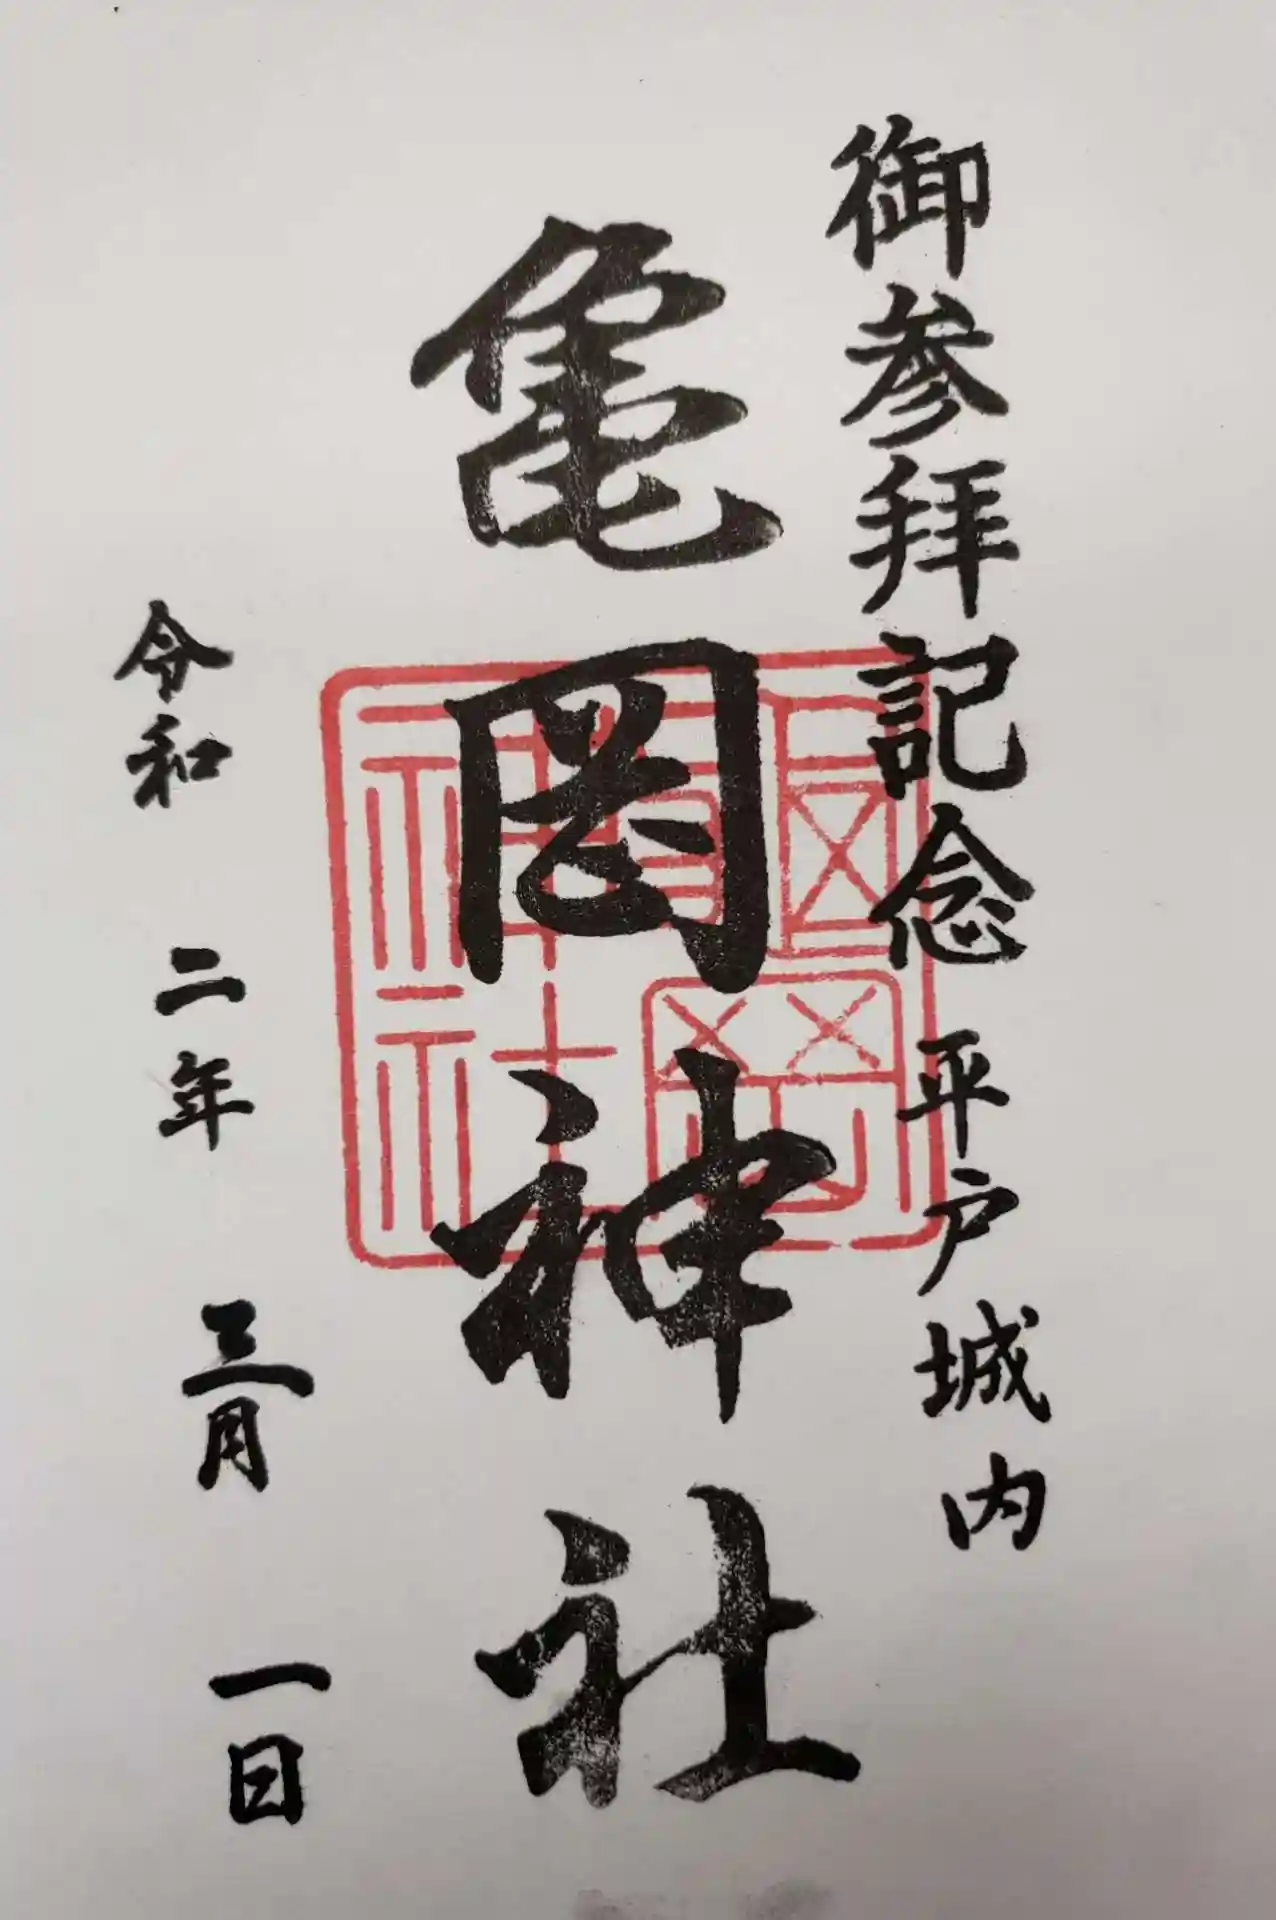 御参拝記念 平戸城内
亀岡神社
令和二年三月一日